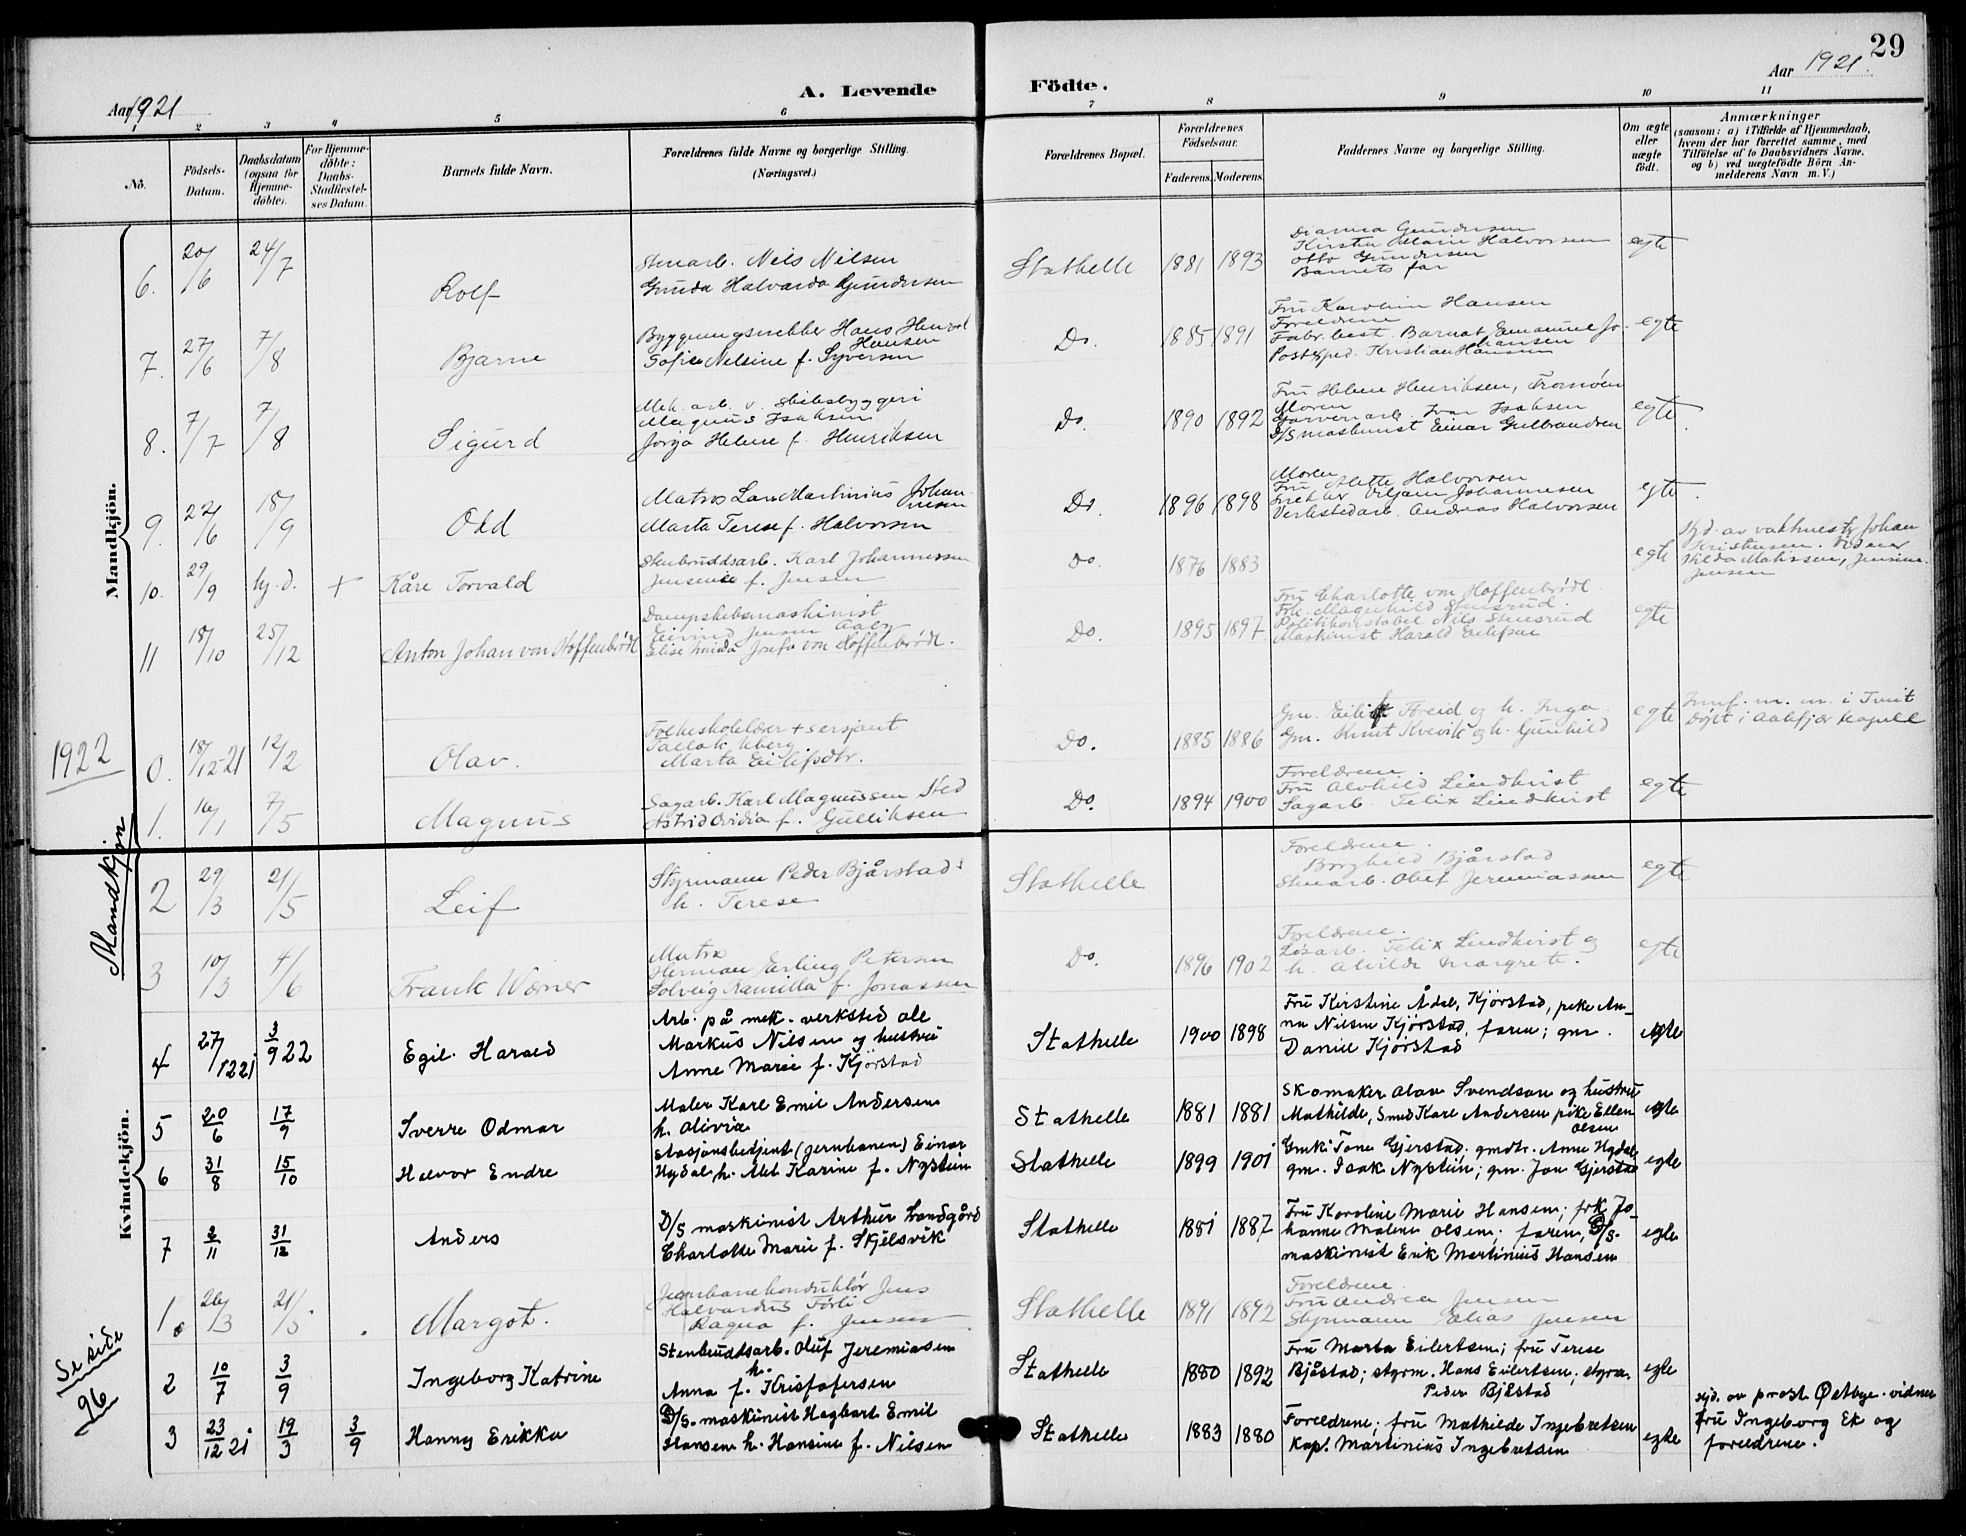 29
Aar 1921
A. Levende
Födte.
Aar 1921.
1 2 3 4 5 6 7 8 9 10 11
No.
Födsels-Datum.
Daabsdatum (ogsaa for Hjemme-døbte).
For Hjemme-döbte: Daabs-Stadfæstel-ses Datum.
Barnets fulde Navn.
Forældrenes fulde Navne og borgerlige Stilling.
(Næringsvei.)
Forældrenes Bopæl.
Forældrenes Födselsaar.
Faderens. Moderens.
Faddernes Navne og borgerlige Stilling.
Om ægte eller uægte födt.
Anmærkninger
(saasom: a) i Tilfælde af Hjemmedaab,
hvem der har forrettet samme, med
Tilföielse af to Daabsvidners Navne,
og b) ved uægtefödte Börn An-
melderens Navn m. V.)
Mandkjön.
6. 20/6 24/7 Rolf
Stenarb. Nils Nilsen
Gunda Halvarda Gundersen
Stathelle 1881 1893
Gundersen
Kirsten Marie Halvorsen
Otto Gundersen
Barnets far
egte
7. 27/6 7/8 Bjarne
Bygningssnekker Hans Henrik
Hansen
Sofie Nelsine f. Syversen
Do. 1885 1891
Fru Karoline Hansen
Foreldrene
Fabr. best. Barnat Emanuel Jo-
hansen
Postexped. Kristian Hansen
egte
8. 7/7 7/8 Sigurd
Mek. arb. v. skibsbyggeri
Magnus Isaksen
Helene f. Henriksen
Do. 1890 1892
Fru Helene Henriksen, Tromøen
Moren
Garveriarb. Ivar Isaksen
D/S maskinist Einar Gulbrandsen
egte
9. 22/6 18/9 Odd
Matros Lars Martinius Johan-
nesen
Marta Terese f. Halvorsen
Do. 1896 1898
Moren
Fru Alette Halvorsen
Snekker Johannesen
Verkstedarb. Andreas Halvorsen
egte
10. 29/9 hj.d. + Kåre Torvald
Stenbruddsarb. Karl Johannessen
Jensine f. Jensen
Do. 1876 1883
egte
Hjd. av Johan
Kristensen. Vidner
Hilda Jensine
Jensen
11 18/10 25/12 Anton Johan von Hoffenbrødl
Dampskibsmaskinist
Eivind Jensen Aaby
Elise Josefa von Hoffenbrødl.
Do. 1895 1897
Fru Charlotte von Hoffenbrødl.
Frk. Magnhild Stensrud.
Politikonstabel Nils Stensrud
Maskinist Harald Eilefsen
egte
1922
0. 18/12-21 12/2 Olav.
Folkeskolelærer + sersjant
Tallak
Marta Eilifsdtr.
Do. 1885 1886
Gm. Eilif og h. Inga
Gm. Knut Kvevik og h. Gunhild
egte
Innf. m. m. i
Døpt i kapell
1. 16/1 7/5 Magnus
Sagarb. Karl Magnussen Sted
Astrid Ovidia f. Gulliksen
Do. 1894 1900
Foreldrene.
Fru Alvhild Lindkvist
Sagarb. Felix Lindkvist
egte
Mandkjön
2 29/3 21/5 Leif
Styrmann Peder Bjårstad
h. Terese
Stathelle
Foreldrene.
Borghild Bjårstad
Stenarb. Oluf Jeremiassen
egte
3 10/3 4/6 Frank Werner
Matros
Herman Erling Petersen
Solveig Kamilla f. Jonassen
Do. 1896 1902
Foreldrene.
Løsarb. Felix Lindkvist og
h. Alvilde Margrete.
egte
4 27/12 21 3/9 22 Egil Harald
Arb. på mek. verksted Ole
Markus Nilsen og hustru
Anne Marie f. Kjørstad
Stathelle 1900 1898
Fru Kirstine Ådal, Kjörstad, pike An-
na Nilsen Kjörstad, faren; gm.
Daniel Kjörstad
egte
Kvindekjön.
5 20/6 17/9 Sverre Odmar
Maler Karl Emil Andersen
h. Olivia
Stathelle 1881 1881
Skomaker Olav Svendsen og hustru
Mathilde, Smed Karl Andersen pike Ellen
Olsen
egte
6 31/8 15/10 Halvor Endre
Stasjonsbetjent (jernbanen) Einar
Hydal h. Karine f. Nystein
Stathelle 1899 1901
Gmk. Tone Gjerstad, gmdtr. Anne Hydal,
gm. Isak Nystein; gm. Jon Gjerstad
egte
7 2/11 31/12 Anders
D/S maskinist Arthur Sandgård
Charlotte Marie f. Skjelsvik
Stathelle 1881 1887
Fru Karoline Marie Hansen; frk Jo-
hanne Malene Olsen; faren, D/S-
maskinist Erik Martinius Hansen
egte
1. 26/3 21/5 Margot.
Jernbanekonduktör Jens
Halvardus Förli
Ragna f. Jensen
Stathelle 1891 1892
Foreldrene.
Fru Andrea Jensen
Styrmann Elias Jensen
Se side
96
2 10/7 3/9 Ingeborg Katrine
Stenbruddsarb. Oluf Jeremiasen
h.
Anna f. Kristofersen
Stathelle 1880 1892
Fru Marta Eilertsen; fru Terese
Bjåstad; styrm. Hans Eilertsen; styrm.
Peder Bjåstad
egte
3 23/12 21 19/3 3/9 Hanny Erikka
D/S. maskinist Hagbart Emil
Hansen h. Hansine f. Nilsen
Stathelle 1883 1880
Foreldrene; fru Mathilde Ingebretsen
Kapt. Martinius Ingebretsen
egte
Hjd. av prost Østbye. vidner
fru Ingeborg Ek og
foreldrene.